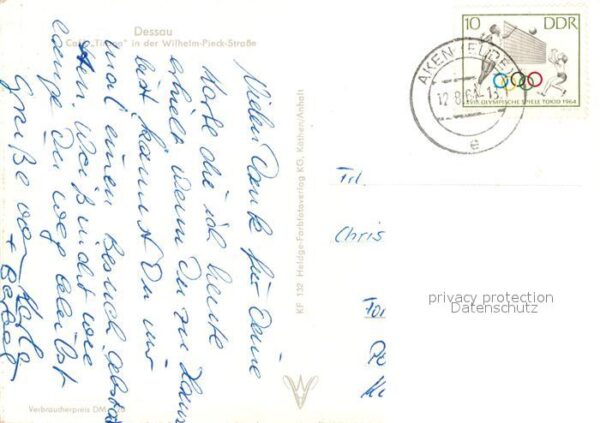 Dessau
Café „Tirana" in der Wilhelm-Pieck-Straße
10 DDR
XVIII. OLYMPISCHE SPIELE TOKIO 1964
AKEN (ELBE)
12.8.64 - 13
e
Vielen Dank für Deine
Karte die ich heute
erhielt wenn Du zu Hause
bist kannst Du mir
mal einen Besuch
Weiß nicht wie
lange Du weg bleibst
Grüße von
+
KF 132 Heldge-Farbfotoverlag KG, Köthen/Anhalt
Frl.
Chris
privacy protection
Datenschutz
Verbraucherpreis DM